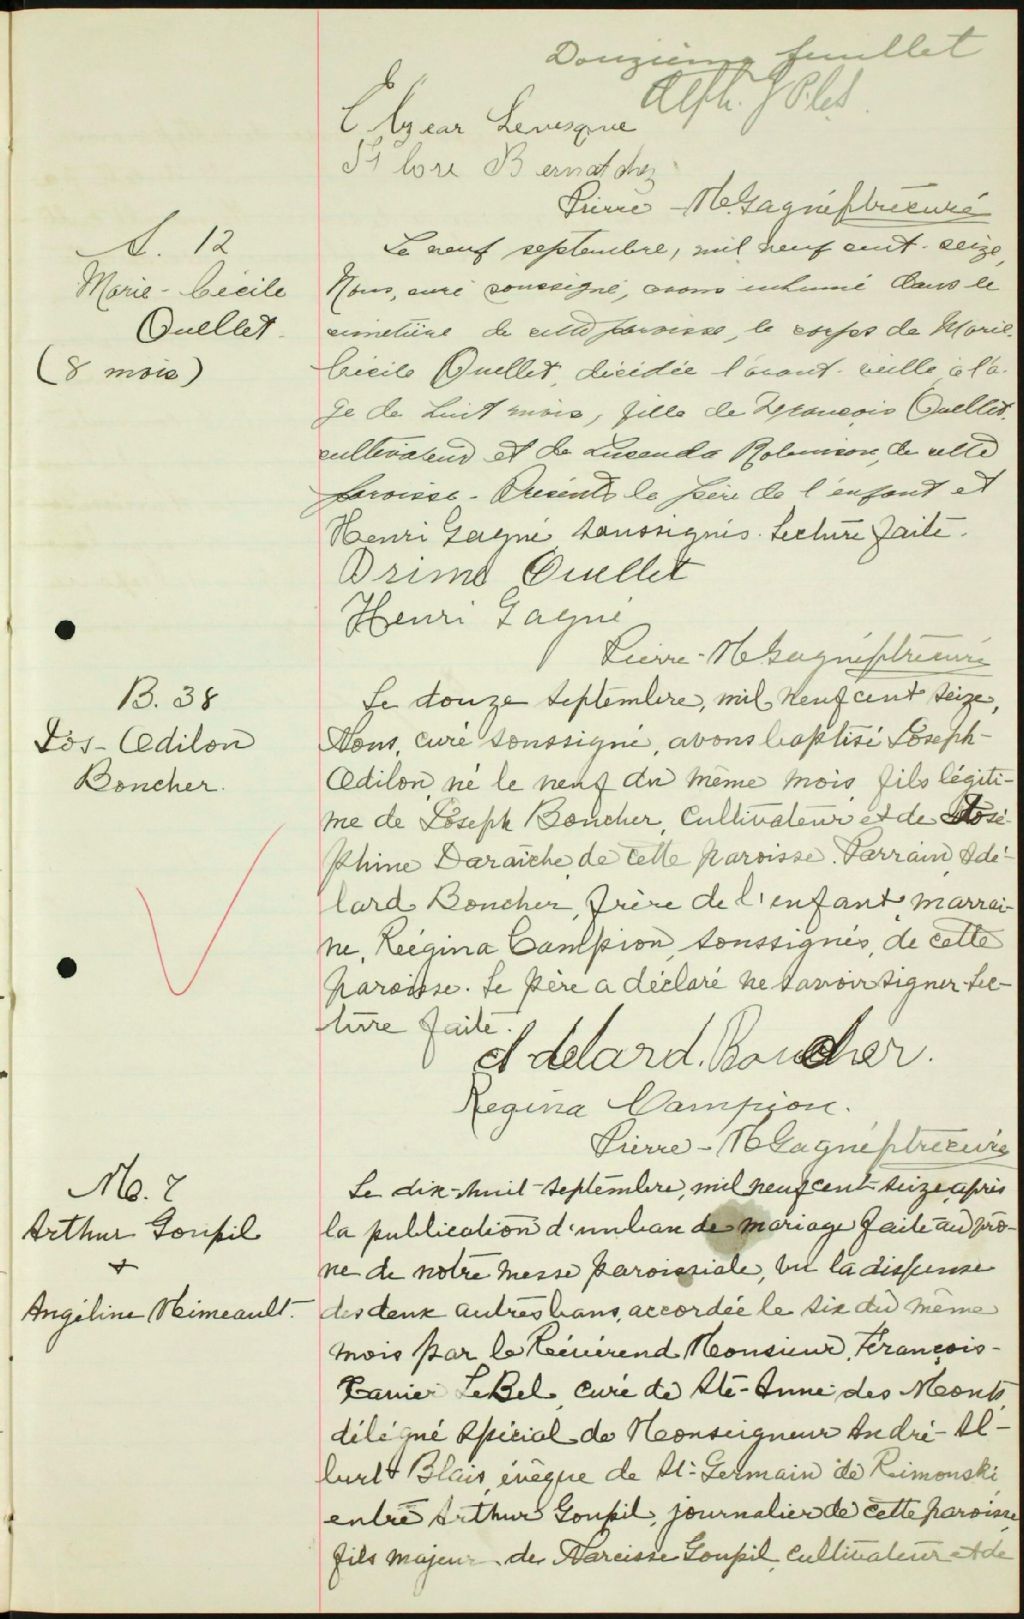 Douzième feuillet
Alph.
Elzear Levesque
Flore Bernatchez
Pierre-M Gagné ptre curé
S. 12
Marie-Cécile
Ouellet.
(8 mois)
Le neuf septembre, mil neuf cent seize,
Nous, curé soussigné, avons inhumé dans le
cimetière de cette paroisse, le corps de Marie-
Cécile Ouellet, décédée l'avant-veille à l'â-
ge de huit mois, fille de François Ouellet,
cultivateur et de Lucenda Robinson, de cette
paroisse. Présents le père de l'enfant et
Henri Gagné soussignés. Lecture faite.
Ouellet
Henri Gagné
Pierre-M Gagné ptre curé
B. 38
Jos-Odilon
Boucher.
Le douze septembre, mil neuf cent seize,
Nous, curé soussigné, avons baptisé Joseph-
Odilon, né le neuf du même mois fils légiti-
me de Joseph Boucher, cultivateur et de José-
phine Daraiche de cette paroisse. Parrain Adé-
lard Boucher, frère de l'enfant, marrai-
ne, Régina Campion, soussignés, de cette
paroisse. Le père a déclaré ne savoir signer. Lec-
ture faite.
Adelard. Boucher.
Regina Campion.
Pierre-M Gagné ptre curé
M. 7
Arthur Goupil
+
Angéline Mimeault.
Le dix-huit septembre, mil neuf cent seize, après
la publication d'un ban de mariage faite au prô-
ne de notre messe paroissiale, vu la dispense
des deux autres bans, accordée le six du même
mois par le Révérend Monsieur, François-
Xavier LeBel, curé de Ste-Anne des Monts,
délégué spécial de Monseigneur André-Al-
bert Blais, évêque de St-Germain de Rimouski
entre Arthur Goupil, journalier de cette paroisse
fils majeur de Narcisse Goupil, cultivateur et de